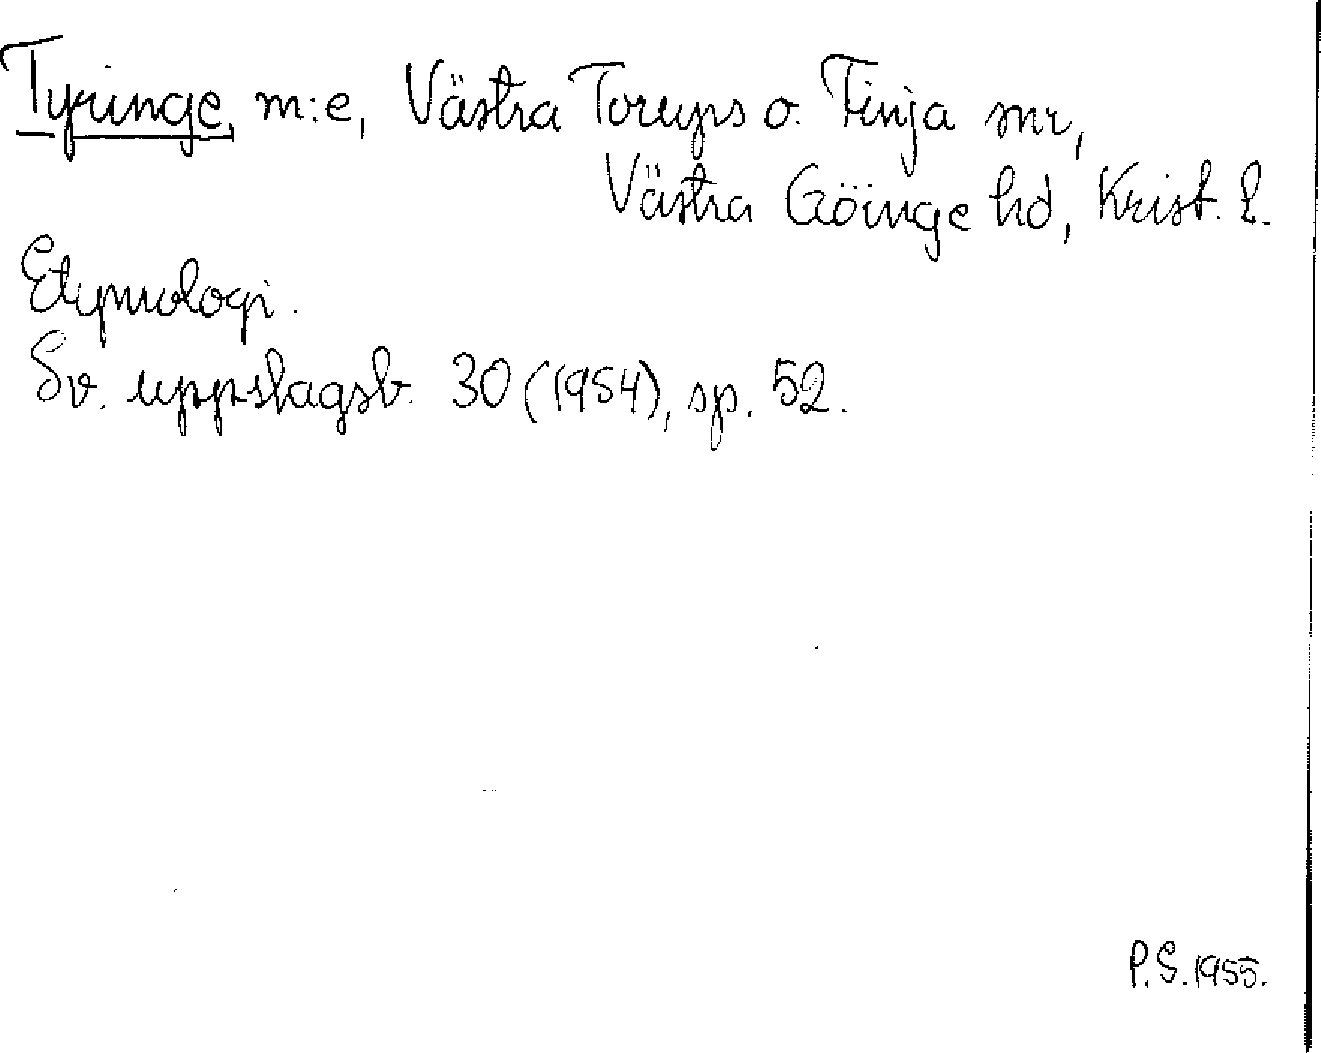 Tyringe, m:e, Västra Torups o. Finja snr,
Västra Göinge hd, Krist. l.
Etymologi.
Sv. uppslagsb. 30 (1954), sp. 52.
P.S. 1955.